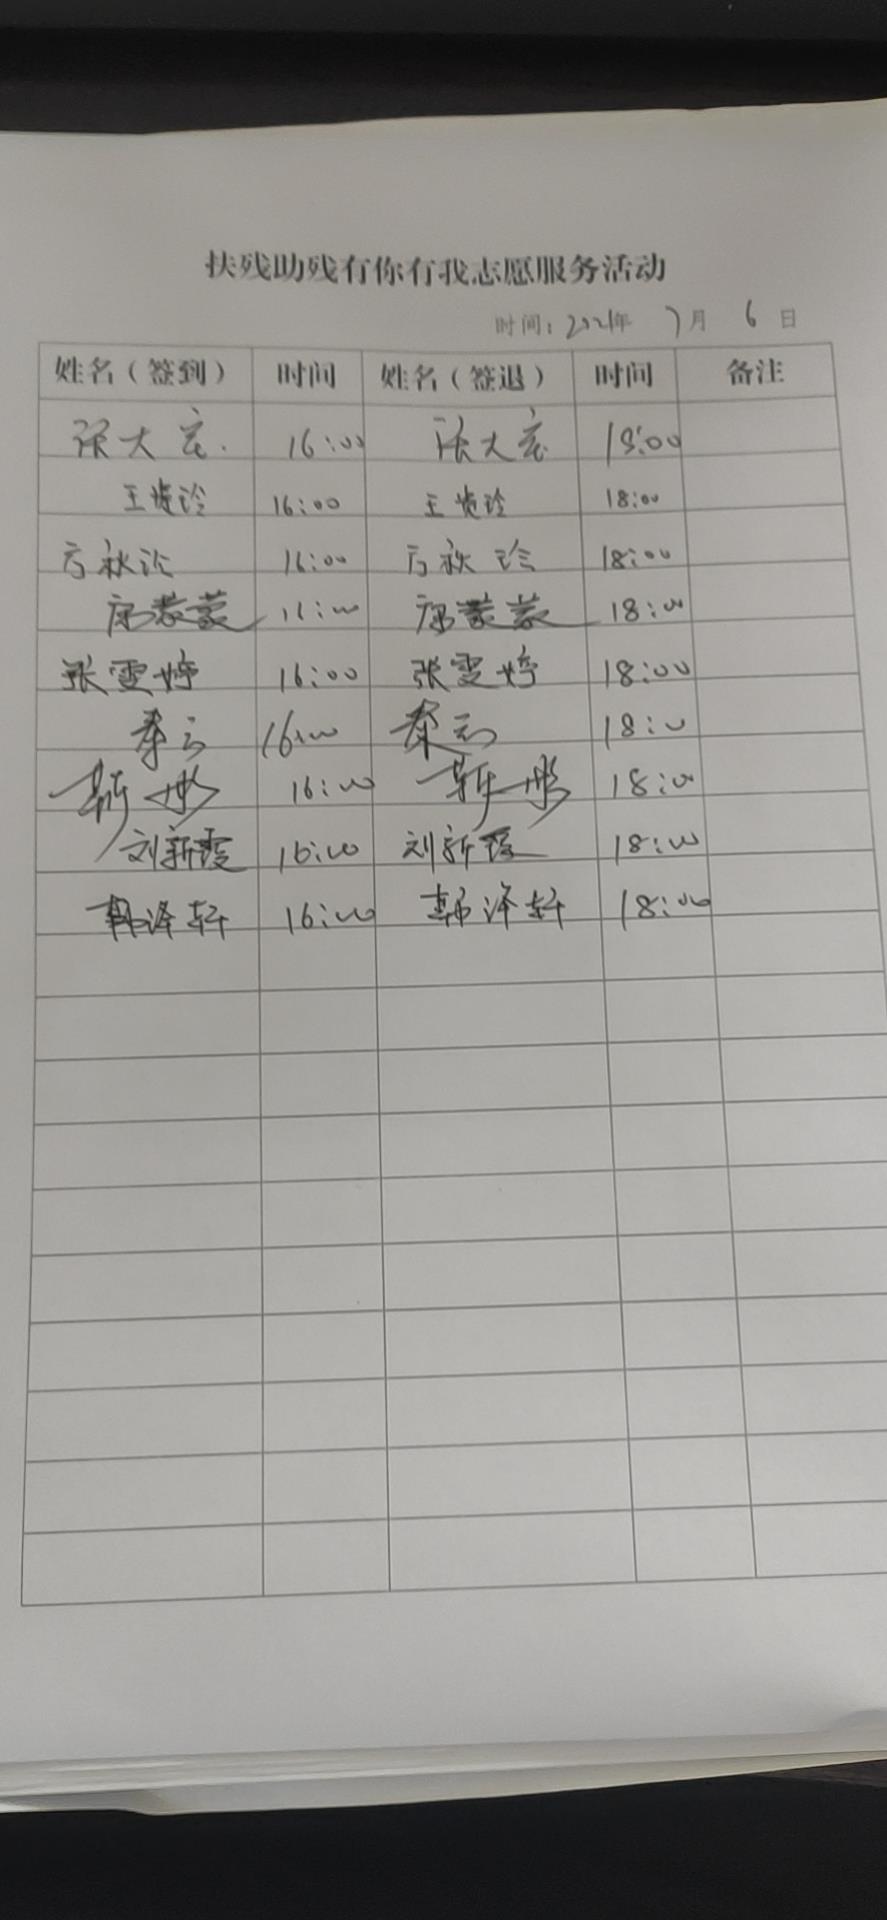 扶残助残有你有我志愿服务活动
时间：2021年 7月 6日
姓名（签到） 时间 姓名（签退） 时间 备注
张大宏 16:00 张大宏 18:00
王贵玲 16:00 王贵玲 18:00
方秋玲 16:00 方秋玲 18:00
蒙蒙 16:00 蒙蒙 18:00
张雯婷 16:00 张雯婷 18:00
秦云 16:00 秦云 18:00
靳彤 16:00 靳彤 18:00
刘新霞 16:00 刘新霞 18:00
韩泽轩 16:00 韩泽轩 18:00